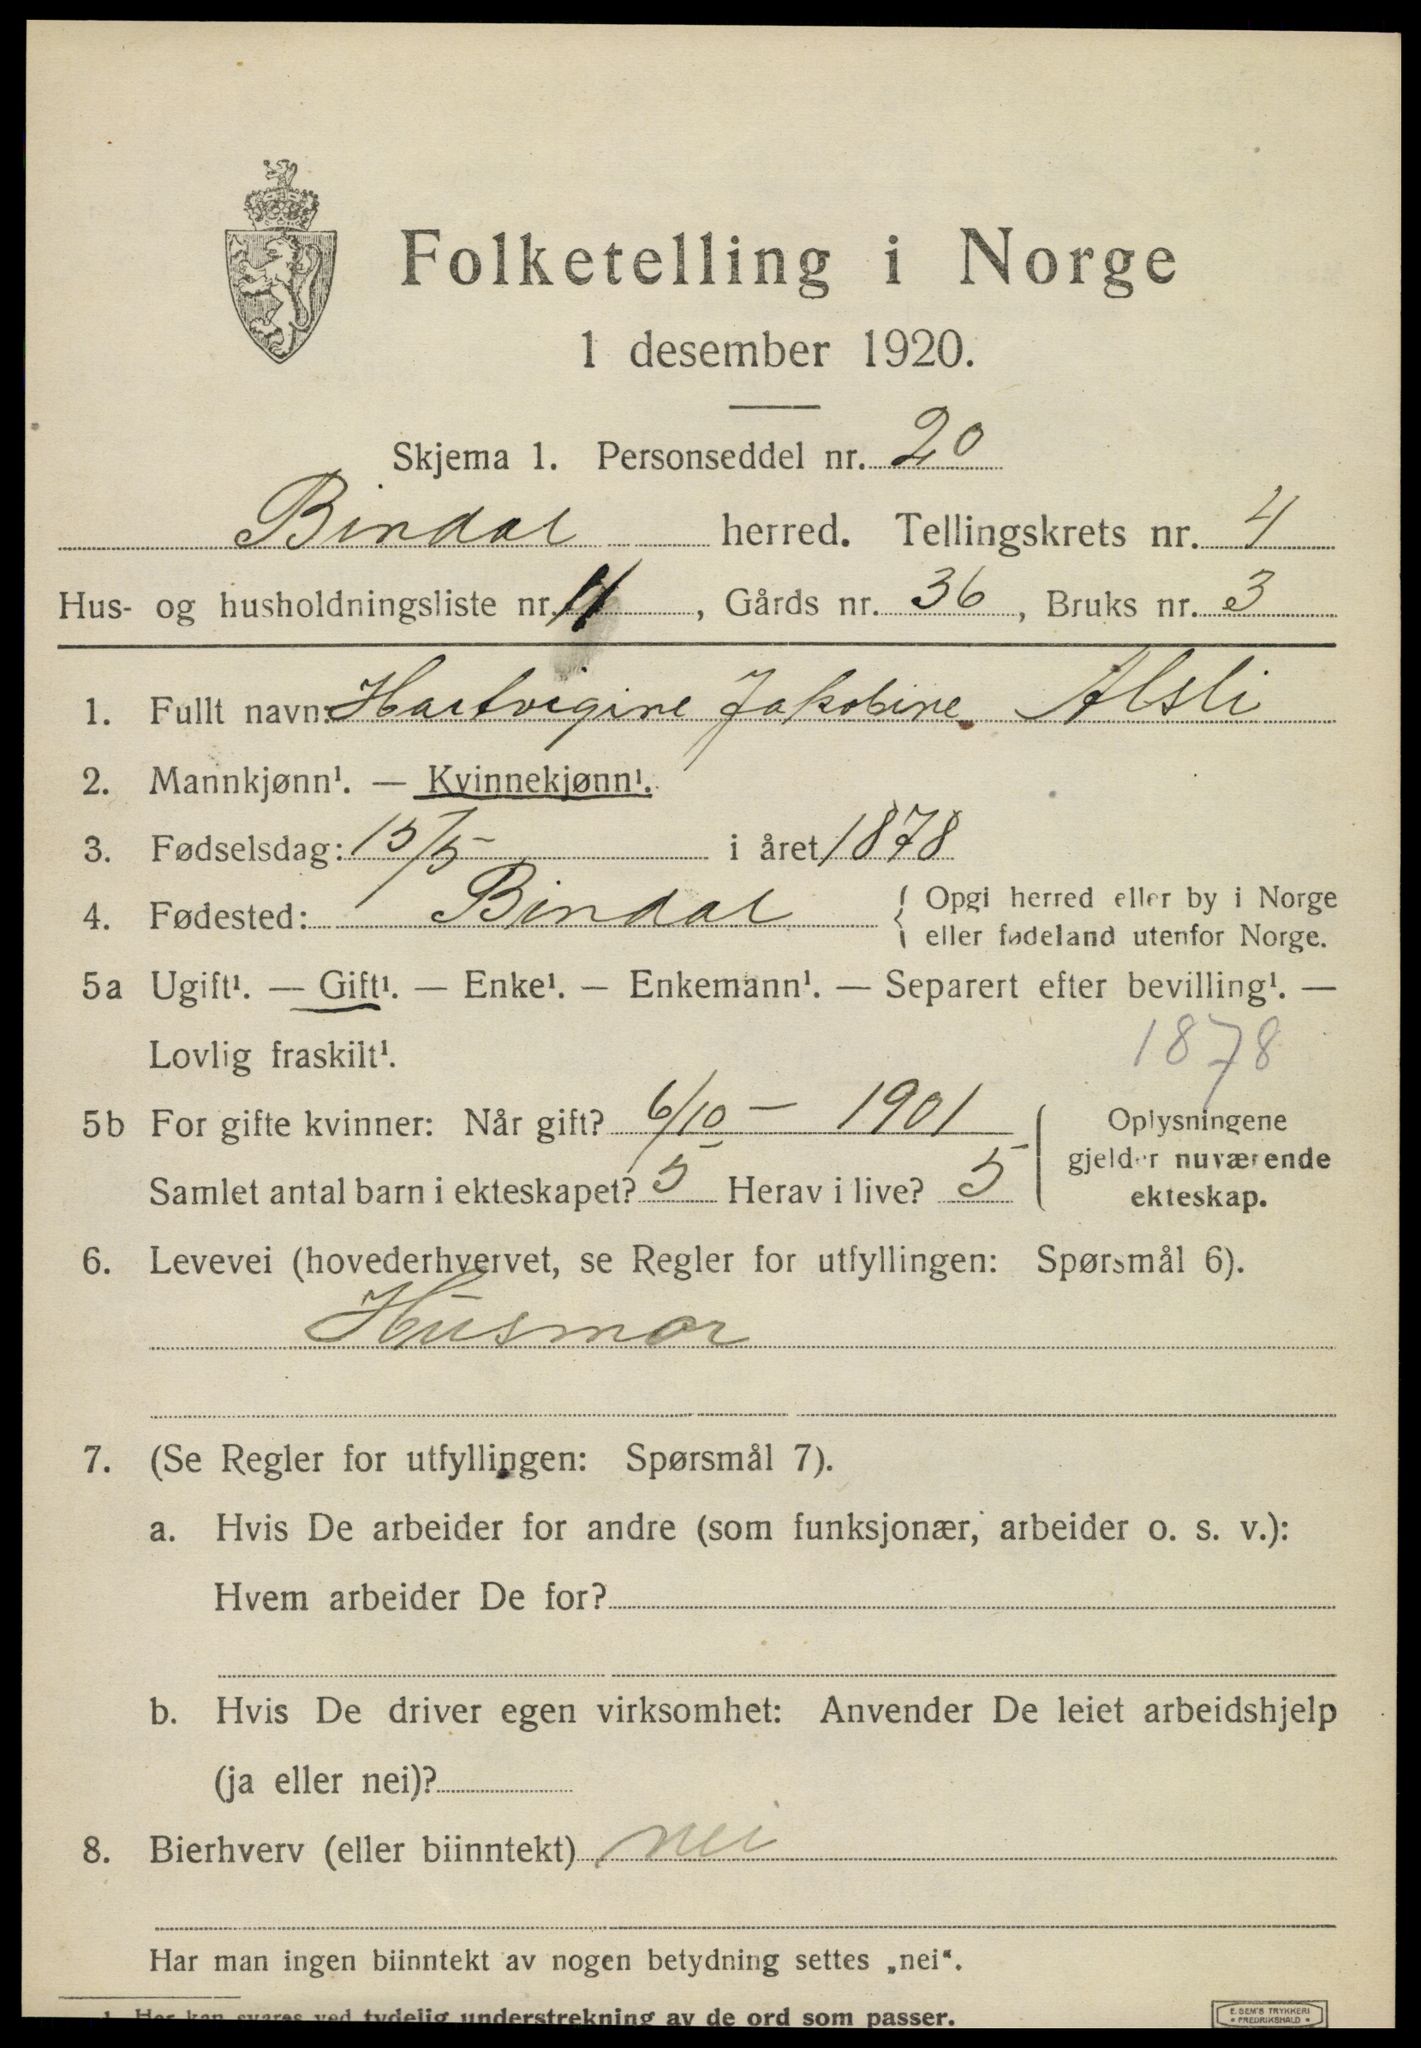 Folketelling i Norge
1 desember 1920.
Skjema 1. Personseddel nr. 20
Bindal herred. Tellingskrets nr. 4
Hus- og husholdningsliste nr. 11, Gårds nr. 36, Bruks nr. 3
1. Fullt navn: Hartvigine Jakobine Alsli
2. Mannkjønn¹. — Kvinnekjønn¹.
3. Fødselsdag: 15/5 i året 1878
4. Fødested: Bindal { Opgi herred eller by i Norge
eller fødeland utenfor Norge.
5a Ugift¹. — Gift¹. — Enke¹. — Enkemann¹. — Separert efter bevilling¹. —
Lovlig fraskilt¹. 1878
5b For gifte kvinner: Når gift? 6/10 — 1901
Samlet antal barn i ekteskapet? 5 Herav i live? 5
Oplysningene
gjelder nuværende
ekteskap.
6. Levevei (hovederhvervet, se Regler for utfyllingen: Spørsmål 6).
Husmor
7. (Se Regler for utfyllingen: Spørsmål 7).
a. Hvis De arbeider for andre (som funksjonær, arbeider o. s. v.):
Hvem arbeider De for?
b. Hvis De driver egen virksomhet: Anvender De leiet arbeidshjelp
(ja eller nei)?
8. Bierhverv (eller biinntekt) nei
Har man ingen biinntekt av nogen betydning settes „nei“.
1 Her kan svares ved tydelig understrekning av de ord som passer.
E. SEM'S TRYKKERI
FREDRIKSHALD